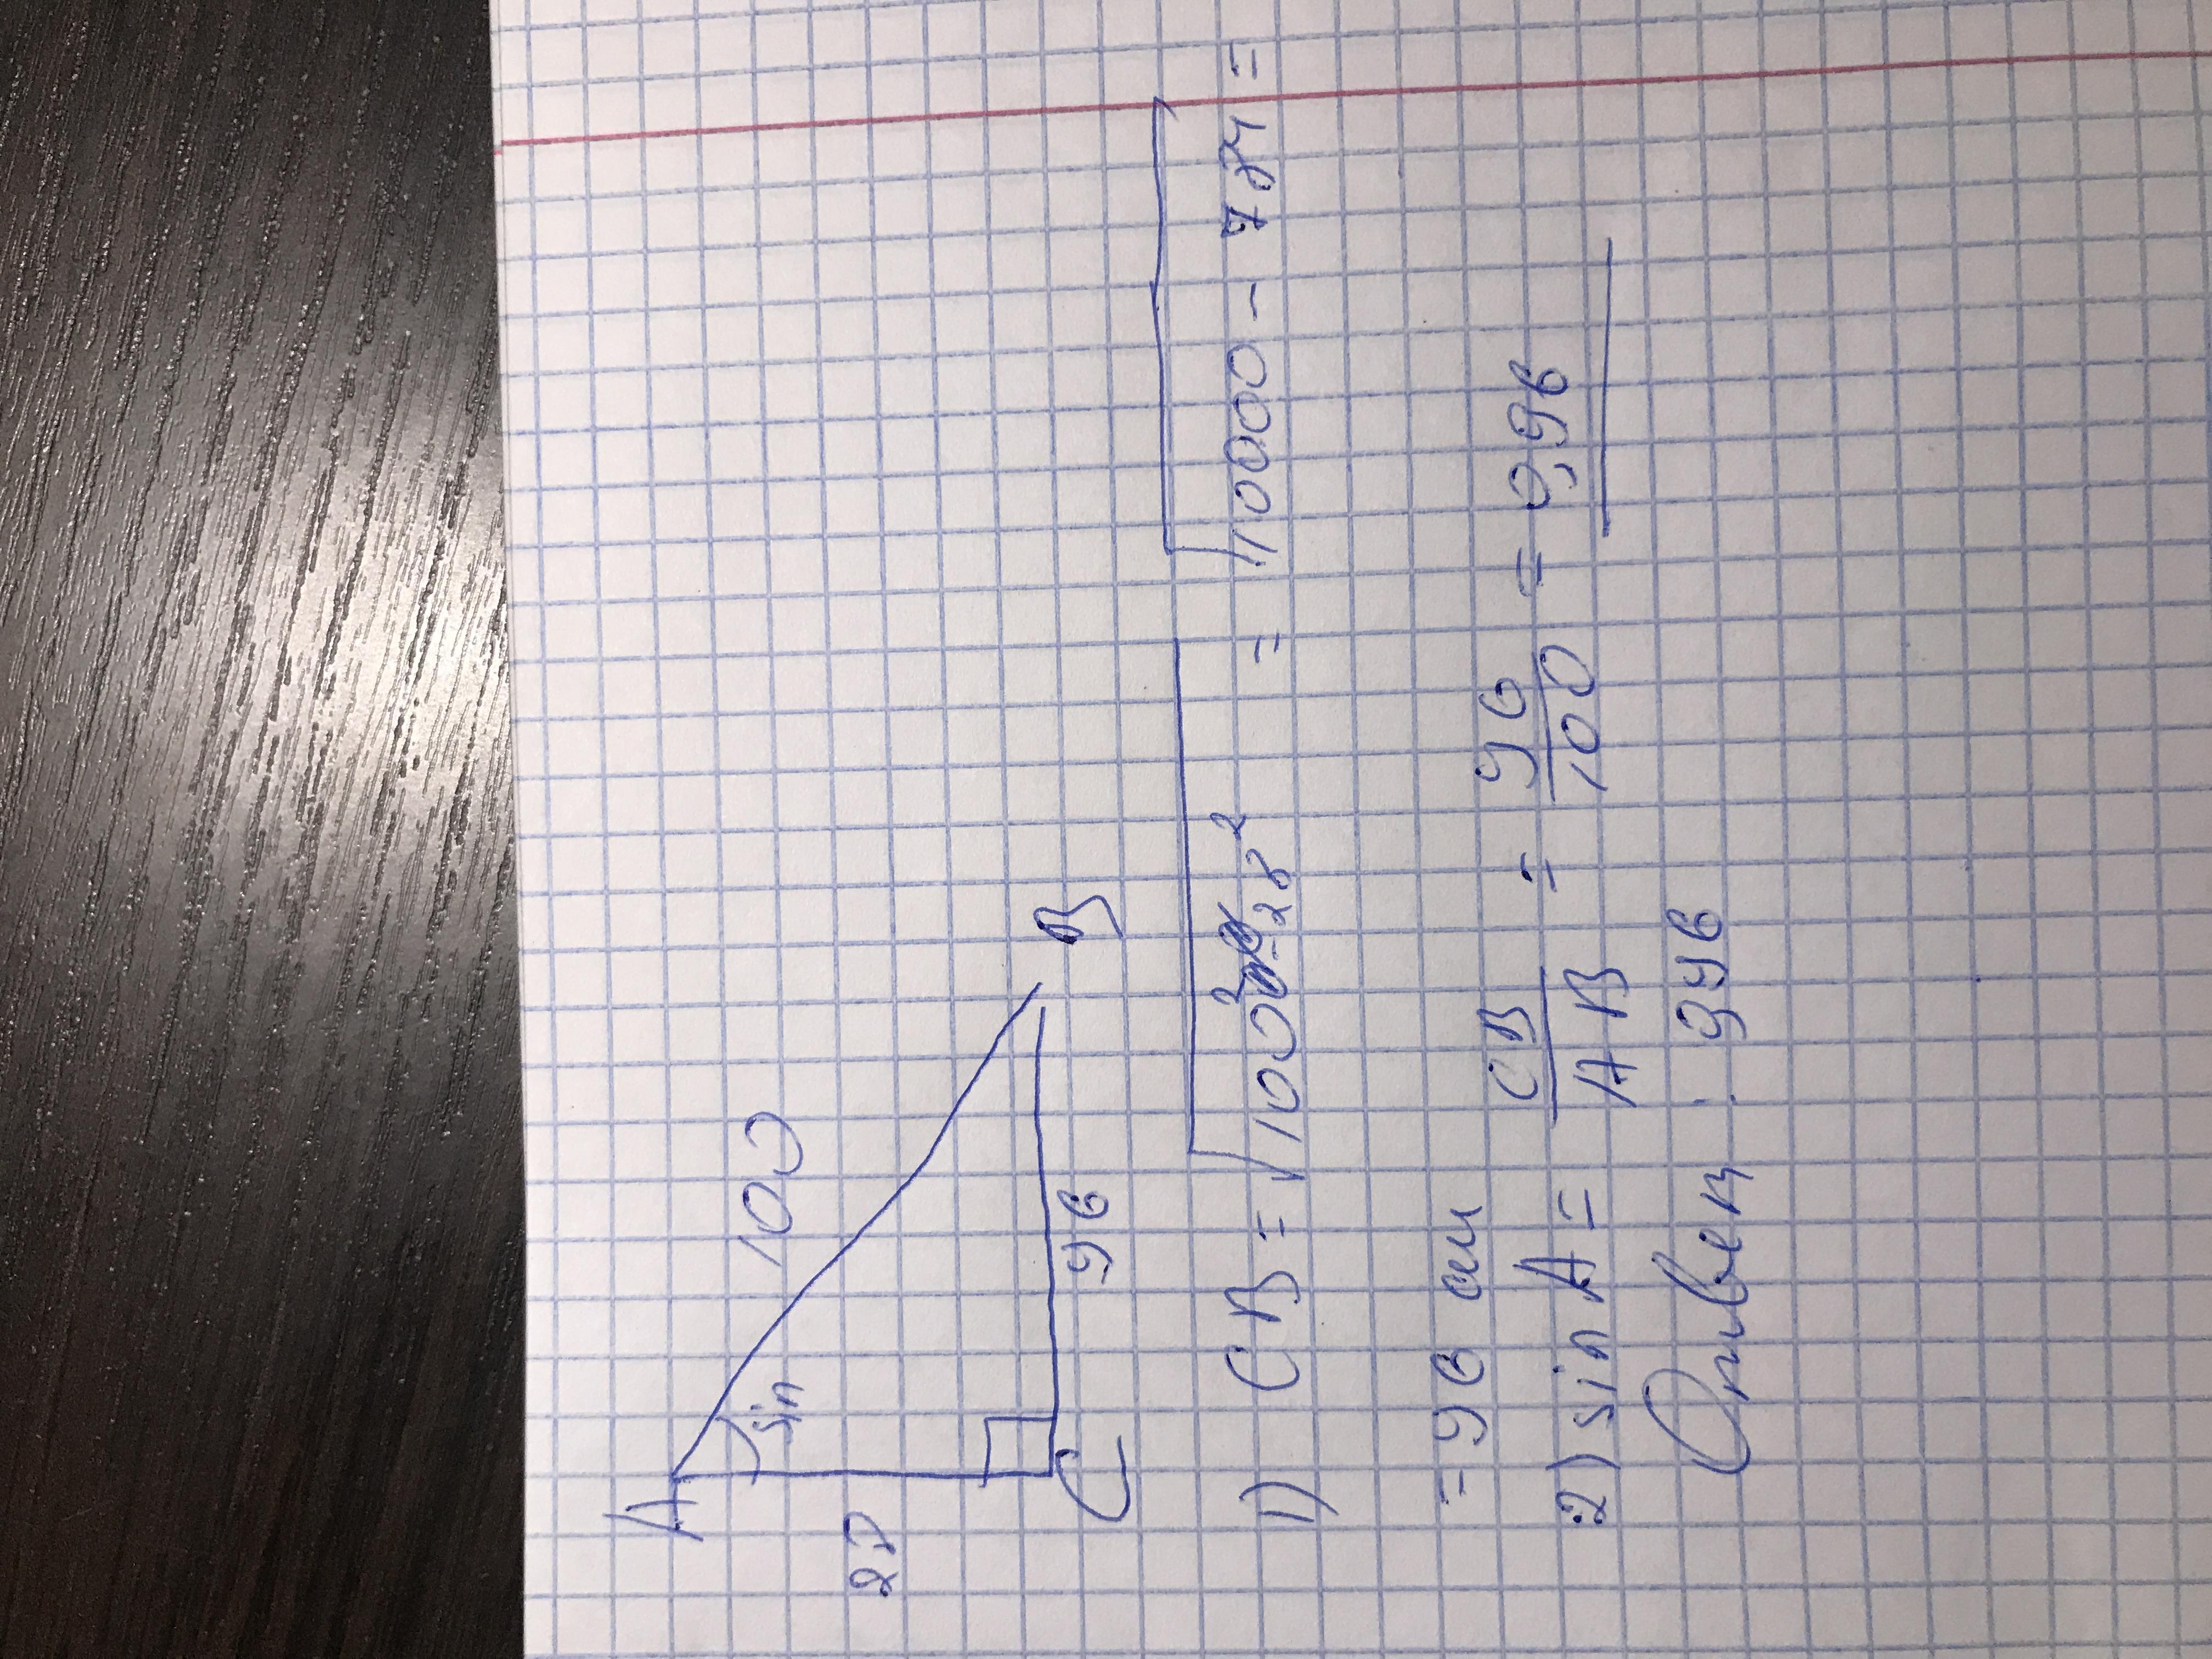 A
100
sin
28
C
96
B
1) CB = √100² - 28² = √10000 - 784 =
= 96 см
2) sin A = CB/AB = 96/100 = 0,96
Ответ: 0,96